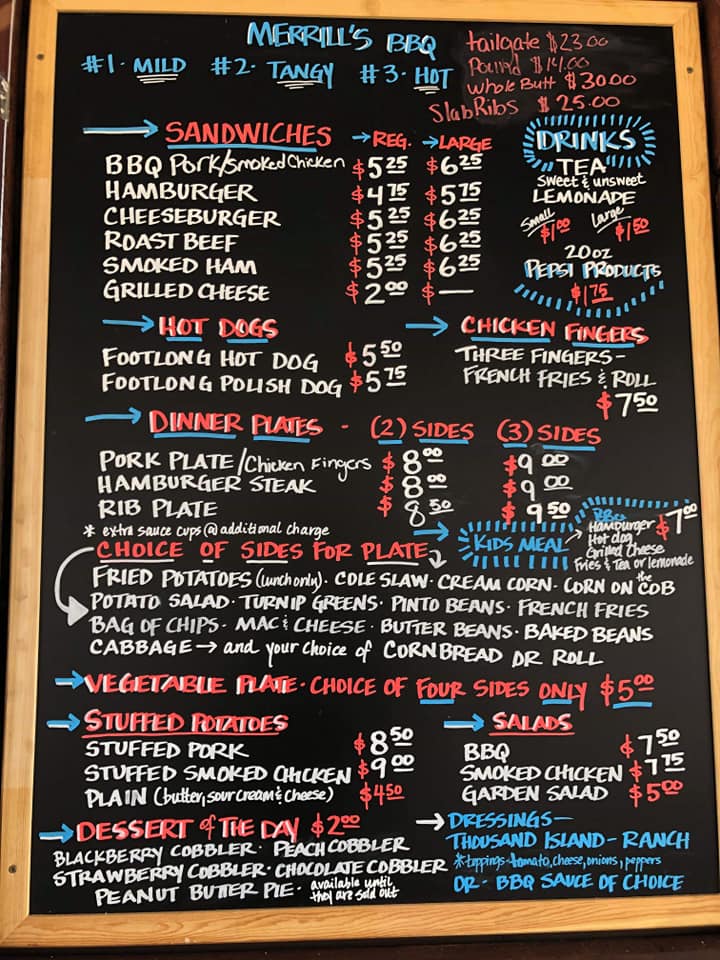 MERRILL'S BBQ
#1 · MILD #2 · TANGY #3 · HOT
tailgate $23.00
Pound $14.00
whole Butt $30.00
Slab Ribs $25.00
SANDWICHES → REG. → LARGE
BBQ Pork/Smoked Chicken $5.25 $6.25
HAMBURGER $4.75 $5.75
CHEESEBURGER $5.25 $6.25
ROAST BEEF $5.25 $6.25
SMOKED HAM $5.25 $6.25
GRILLED CHEESE $2.00 $—
DRINKS
TEA
sweet & unsweet
LEMONADE
Small $1.00 Large $1.50
20oz
PEPSI PRODUCTS
$1.75
→ HOT DOGS
FOOTLONG HOT DOG $5.50
FOOTLONG POLISH DOG $5.75
→ CHICKEN FINGERS
THREE FINGERS—
FRENCH FRIES & ROLL
$7.50
→ DINNER PLATES - (2) SIDES (3) SIDES
PORK PLATE/Chicken Fingers $8.00 $9.00
HAMBURGER STEAK $8.00 $9.00
RIB PLATE $8.50 $9.50
* extra sauce cups @ additional charge
→ KIDS MEAL → BBQ
Hamburger $7.00
Hot dog
Grilled Cheese
Fries & Tea or lemonade
CHOICE OF SIDES FOR PLATE
FRIED POTATOES (lunch only) · COLE SLAW · CREAM CORN · CORN ON the COB
POTATO SALAD · TURNIP GREENS · PINTO BEANS · FRENCH FRIES
BAG OF CHIPS · MAC & CHEESE · BUTTER BEANS · BAKED BEANS
CABBAGE → and your choice of CORNBREAD OR ROLL
→ VEGETABLE PLATE · CHOICE OF FOUR SIDES ONLY $5.00
→ STUFFED POTATOES
STUFFED PORK $8.50
STUFFED SMOKED CHICKEN $9.00
PLAIN (butter, sour cream & cheese) $4.50
→ SALADS
BBQ $7.50
SMOKED CHICKEN $7.75
GARDEN SALAD $5.00
→ DESSERT of THE DAY $2.00
BLACKBERRY COBBLER · PEACH COBBLER
STRAWBERRY COBBLER · CHOCOLATE COBBLER
PEANUT BUTER PIE · available until
they are sold out
→ DRESSINGS—
THOUSAND ISLAND - RANCH
*toppings-tomato, cheese, onions, peppers
OR - BBQ SAUCE OF CHOICE